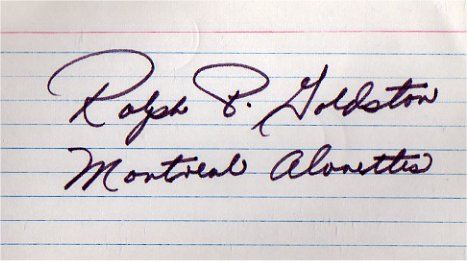 Ralph P. Goldston
Montreal Alouettes